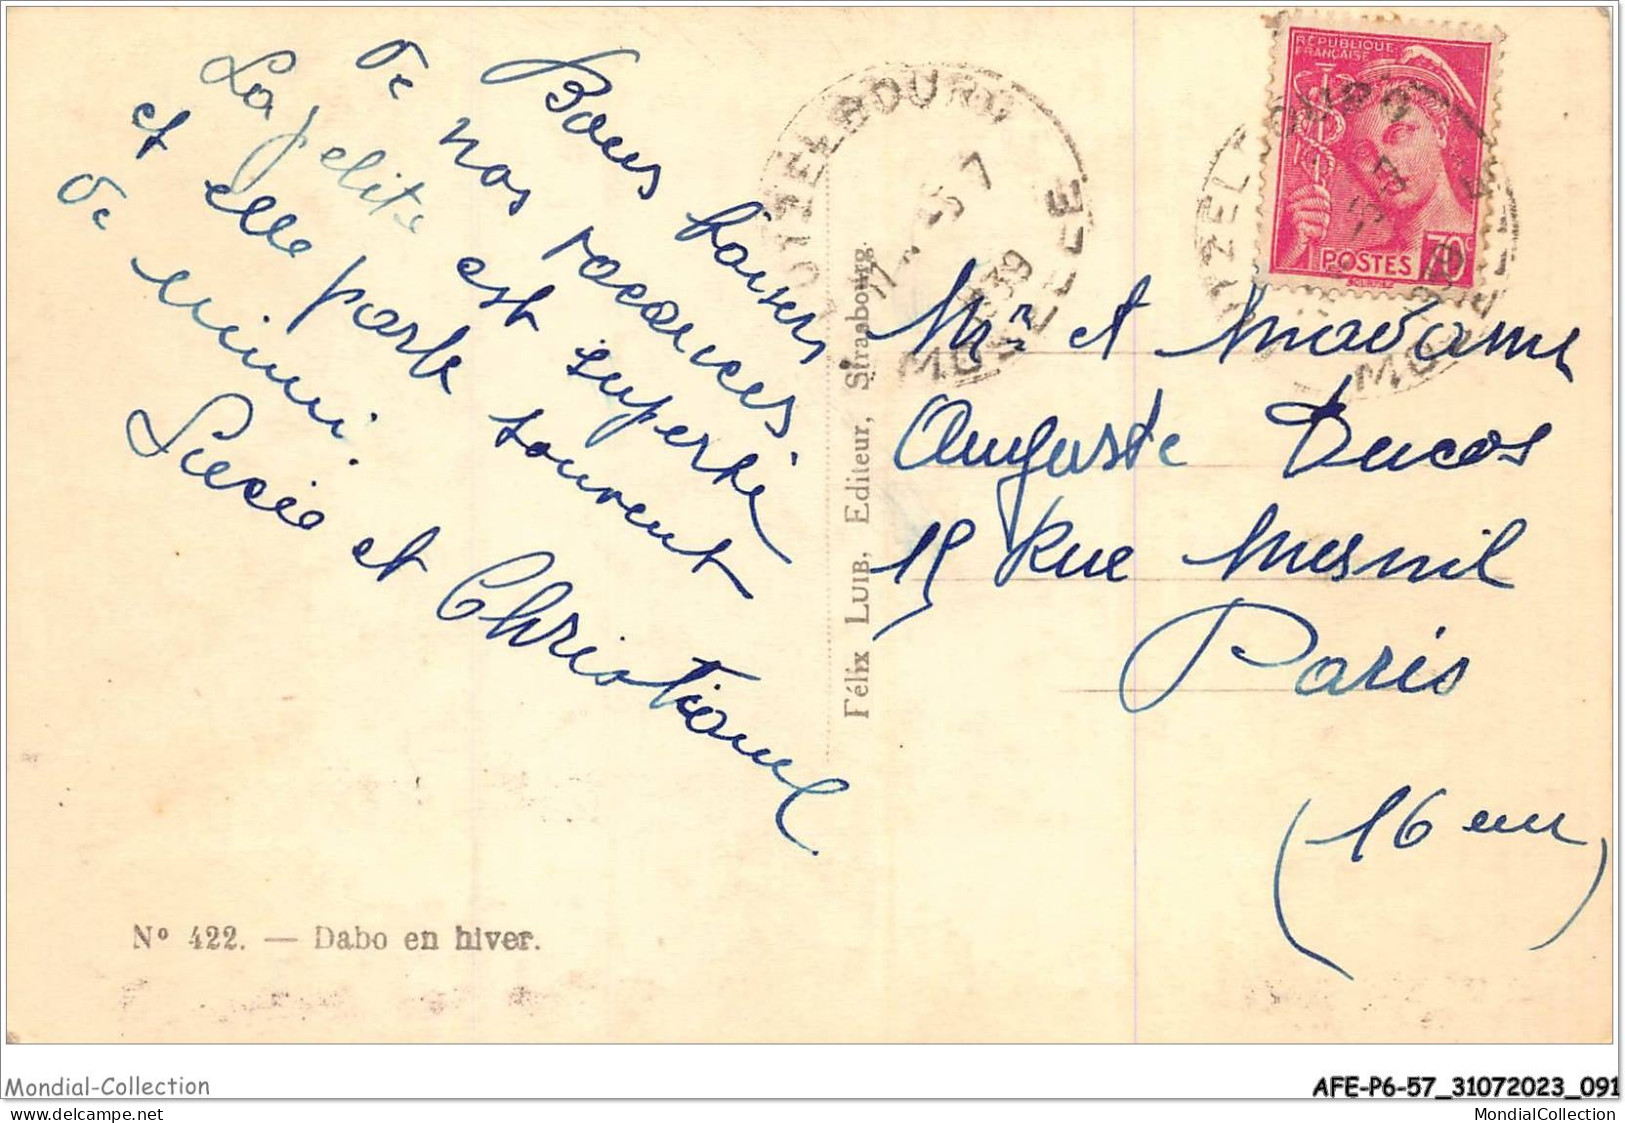 Bons baisers
de nos vacances
La petite est superbe
et elle parle souvent
de mimi.
Lucie et Christiane
Nº 422. — Dabo en hiver.
Félix LUIB, Editeur, Strasbourg.
LUTZELBOURG
17 - 5 7
1939
MOSELLE
REPUBLIQUE
FRANÇAISE
POSTES 70c
LUTZELBOURG
MOSELLE
Mr et Madame
Auguste Ducos
15 Rue Mesnil
Paris
(16 em)
Mondial-Collection
AFE-P6-57_31072023_091
www.delcampe.net
MondialCollection